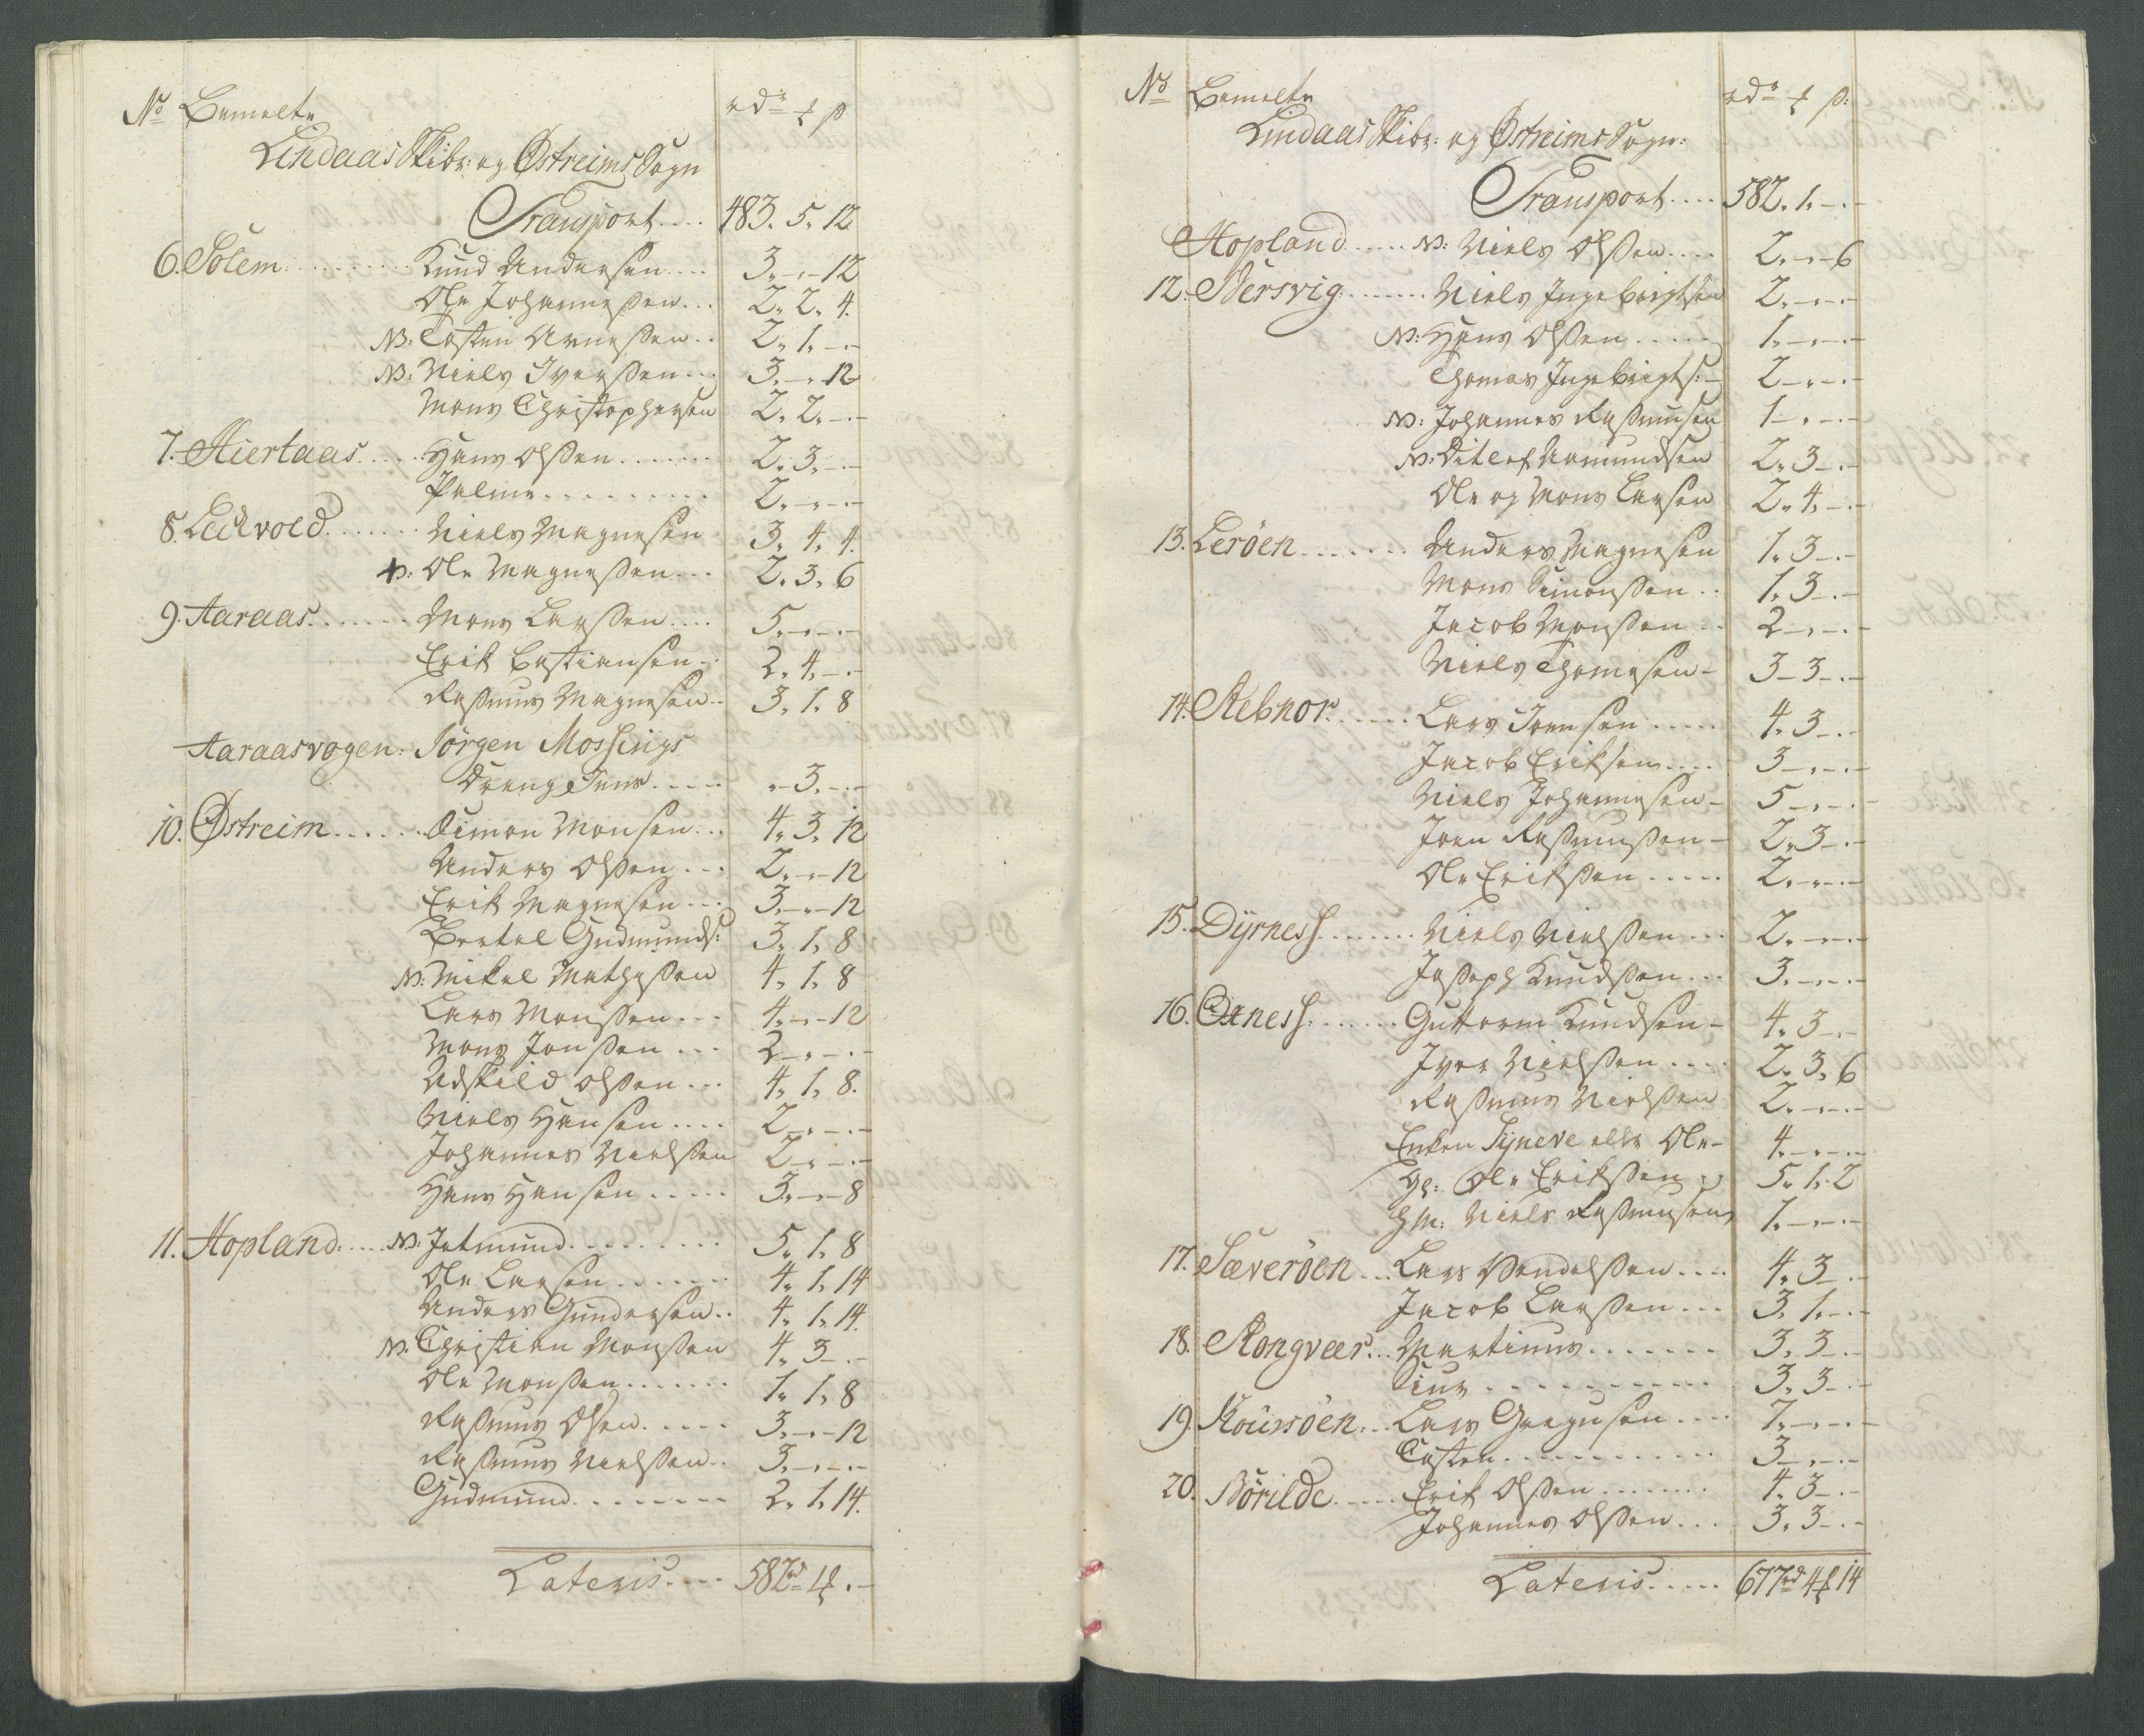 No Bemelte rdr ₰ ß
Lindaas Skibr: og Østreims Sogn
Transport.... 483. 5. 12
6. Solem......... Knud Andersen.... 3. -. -12
Ole Johannesen... 2. 2. 4.
NB: Tosten Arnesen.. 2. 1. -.-
NB: Niels Iverssen... 3. -. 12
Mons Christophersen 2. 2. -.-
7. Hiertaas.... Hans Olssen....... 2. 3. -.-
Palme......... 2. -. -.-
8. Leckvold...... Niels Magnesen 3. 4. 4.
NB: Ole Magnessen... 2. 3. 6
9. Aaraas...... Mons Larssen.... 5. -. -.-
Erik Bastiansen.. 2. 4. -.-
Rasmus Magnesen.. 3. 1. 8
Aaraasvogen: Jörgen Mossings
Dreng Jens..... .-3. -.-
10. Østreim...... Simon Monsen... 4. 3. 12
Anders Olssen... 2. -. -12
Erik Magnesen... 3. -. -12
Bertel Gudmunds: 3. 1. 8
NB: Mikel Mathissen 4. 1. 8
Lars Monssen... 4. -. -12
Mons Jonssen... 2 -. -.-
Adskild Olssen... 4. 1. 8.
Niels Hansen.... 2 -. -.-
Johannes Nielssen 2 -. -.-
Hans Hansen..... 3. -. -8
11. Hopland.... NB: Jetmund......... 5. 1. 8
Ole Larsen...... 4. 1. 14
Anders Gundersen.. 4. 1. 14.
NB: Christian Monssen 4. 3 -.-
Ole Monssen....... 1. 1. 8
Rasmus Olsen..... 3. -. -12
Rasmus Nielssen.. 3. -. -.-
Gudmund........ 2. 1. 14.
Lateris.... 582rd 1₰ . -
No Bemelte rdr ₰ ß:
Lindaas Skibr: og Østreims Sogn:
Transport.... 582. 1. -.-
Hopland..... NB: Niels Olssen.... 2. -. -6
12. Nersvig....... Niels Ingebrigtsen 2. -. -.-
NB: Hans Olssen..... 1. -. -.-
Thomas Ingebrigts:- 2 -. -.-
NB: Johannes Rasmusen 1 -. -.-
NB: Ditlef Amundsen 2. 3 -.-
Ole og Mons Larsen 2. 4. -.-
13. Leröen....... Anders Magnesen 1. 3 -.-
Mons Simonssen.. 1. 3 -.-
Jacob Monssen.. 2 -. -.-
Niels Thomesen- 3 - 3 -.-
14. Rebnor...... Lars Joensen..... 4. 3 -.-
Jacob Eriksen.... 3 -. -.-
Niels Johannesen- 5 -. -.-
Joen Rasmussen- 2. 3 -.-
Ole Erikssen..... 2. -. -.-
15. Dÿrness....... Niels Nielssen... 2. -. -.-
Joseph Knudssen... 3. -. -.-
16. Oxness....... Guttorm Knudsen- 4. 3 -.-
Iver Nielssen.... 2. 3. 6
Rasmus Nielssen 2. -. -.-
Enken Syneve elle Ole- 4. -. -.-
Ole Erikssen 5. 1. 2
hm: Niels Rasmusen 1. -. -.-
17. Sæveröen... Lars Vendelssen.... 4. 3 -.-
Jacob Larssen... 3. 1. -.-
18. Rongveer... Martinus....... 3. 3 -.-
Siur........... 3. 3 -.-
19. Koussöen... Lars Gregusen.... 7. -. -.-
Tosten........... 3 -. -.-
20. Börilde..... Erik Olssen....... 4. 3 -.-
Johannes Olssen... 3. 3 -.-
Lateris..... 677rd 4₰ 14